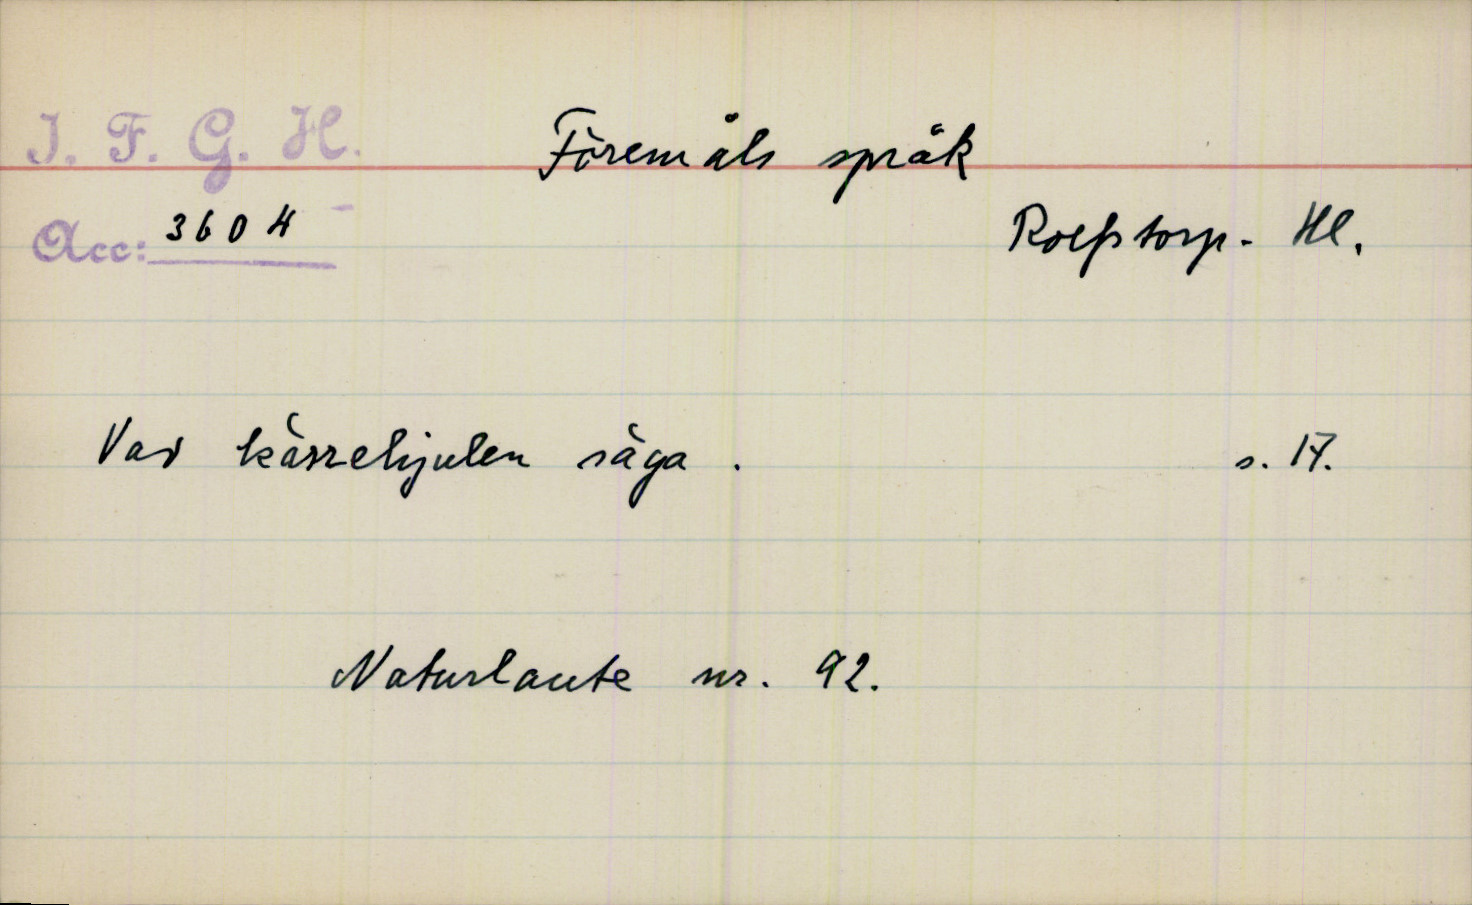 I. F. G. H.
Föremåls språk
Acc: 3604
Rolfstorp - Hl.
Vad kärrehjulen säga.
s. 17.
Naturlaute nr. 92.